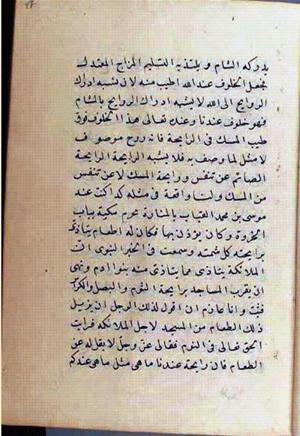 يدركه الشام ويلتذ به السليم المزاج المعتدل
فجعل الخلوف عند الله اطيب منه لان نسبة ادراك
الروايح الى الله لا يشبه ادراك الروايح بالشام
فهو خلوف عندنا وعنده تعالى هذا الخلوف فوق
طيب المسك فى الرايحة فانه روح موصوف
لا مثل لما وصف به فلا يشبه الرايحة الرايحة
الصائم عن تنفس ورايحة المسك لا عن تنفس
من المسك ولنا واقعة فى مثله كنا كنت عند
موسى بن محمد القباب بالمنارة بحرم مكة بباب
الحزورة وكان يؤذن بها فكان له طعام يتاذى
برايحته كل من شمه وسمعت فى الخبر النبوى ان
الملائكة يتاذى مما يتاذى منه بنو ادم ونهى
ان يقرب المساجد برايحة الثوم والبصل والكراث
فبت وانا عازم ان اقول لذلك الرجل ان يزيل
ذلك الطعام من المسجد لاجل الملائكة فرايت
الحق تعالى فى النوم فقال لى عز وجل لا تقل له عن
الطعام فان رايحته عندنا ما هى مثل ما هى عندكم